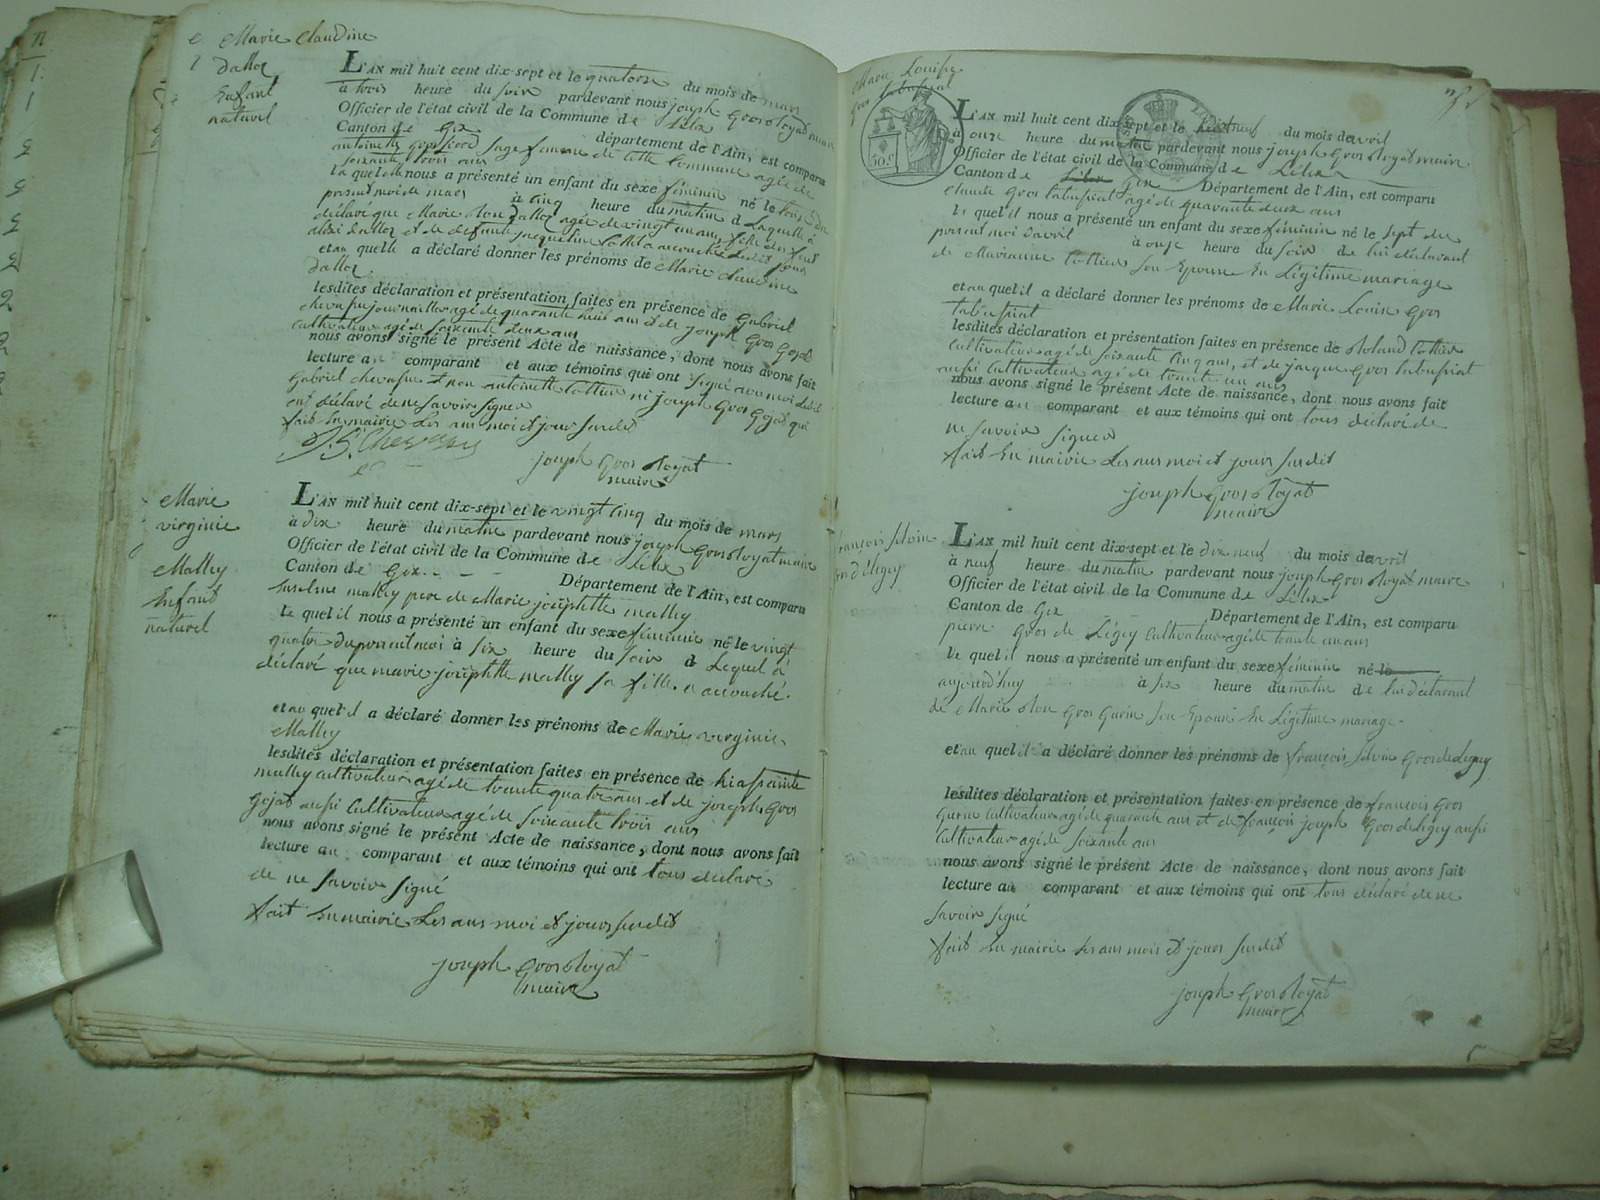 Marie Claudine
Dalloz
Enfant
naturel
L'AN mil huit cent dix-sept et le quatorze du mois de mars
à trois heure du soir pardevant nous joseph Grosroyat maire
Officier de l'état civil de la Commune de Lélex
Canton de Gex département de l'Ain, est comparu
antoinette sage femme de cette Commune agée de
soixante trois ans
la quelle nous a présenté un enfant du sexe féminin né le
présent moi de mars à cinq heure du matin d Laquelle à
déclaré que Marie Dalloz agée de vingt un ans fille de
Dalloz et de defunte jacqueline a accouchée
et au quelle a déclaré donner les prénoms de Marie Claudine
Dalloz
lesdites déclaration et présentation faites en présence de Gabriel
journallier agé de quarante huit ans et de joseph Gros Gojat
Cultivateur agé de soixante deux ans
nous avons signé le présent Acte de naissance, dont nous avons fait
lecture au comparant et aux témoins qui ont signé avec moi
Gabriel et non antoinette ni joseph Gros Gojat qui
ont déclaré de ne savoir signer
fait En mairie Les ans moi et jour susdit
joseph Grosroyat
maire
Marie
virginie
Malley
Enfant
naturel
L'AN mil huit cent dix-sept et le vingt cinq du mois de mars
à dix heure du matin pardevant nous joseph Grosroyat maire
Officier de l'état civil de la Commune de Lélex
Canton de Gex Département de l'Ain, est comparu
malley pere de Marie josephtte malley
le quel il nous a présenté un enfant du sexe féminin né le vingt
quatre du present moi à six heure du soir d Lequel à
déclaré que marie josephtte malley sa fille a accouché.
et au quel il a déclaré donner les prénoms de Marie virginie
Malley
lesdites déclaration et présentation faites en présence de hiassainte
malley cultivateur agé de trente quatre ans et de joseph Gros
Gojat aussi Cultivateur agé de soixante trois ans
nous avons signé le présent Acte de naissance, dont nous avons fait
lecture au comparant et aux témoins qui ont tous declaré
de ne savoir signé
fait En mairie Les ans moi et jour susdit
joseph Grosroyat
maire
Marie Louise
Gros tabussiat
50 c
L'AN mil huit cent dix-sept et le huit neuf du mois de avril
à onze heure du matin pardevant nous joseph Grosroyat maire
Officier de l'état civil de la Commune de Lélex
Canton de Gex Département de l'Ain, est comparu
claude Gros tabussiat agé de quarante deux ans
le quel il nous a présenté un enfant du sexe féminin né le sept du
présent moi d'avril à onze heure du soir de lui déclarant
de Marianne son Epouse En Légitime mariage
et au quel il a déclaré donner les prénoms de Marie Louise Gros
tabussiat
lesdites déclaration et présentation faites en présence de Roland
Cultivateur agé de soixante cinq ans, et de jacque Gros tabussiat
aussi Cultivateur agé de trente un ans
nous avons signé le présent Acte de naissance, dont nous avons fait
lecture au comparant et aux témoins qui ont tous déclaré de
ne savoir signer
fait En mairie Les ans moi et jour susdit
joseph Grosroyat
maire
françois silvin
L'AN mil huit cent dix-sept et le dix neuf du mois de avril
à neuf heure du matin pardevant nous joseph Grosroyat maire
Officier de l'état civil de la Commune de Lélex
Canton de Gex Département de l'Ain, est comparu
pierre Gros de Légey Cultivateur agé de trente un ans
le quel il nous a présenté un enfant du sexe féminin né le
aujourd'huy à six heure du matin de lui déclarant
de Marie Gros Gurin son Epouse En Légitime mariage
et au quel il a déclaré donner les prénoms de françois silvin Gros de Légey
lesdites déclaration et présentation faites en présence de françois Gros
Gurin cultivateur agé de quarante ans et de françois joseph Gros de ligey aussi
Cultivateur agé de soixante ans
nous avons signé le présent Acte de naissance, dont nous avons fait
lecture au comparant et aux témoins qui ont tous déclaré de ne
savoir signé
fait En mairie les ans mois et jour susdit
joseph Grosroyat
maire